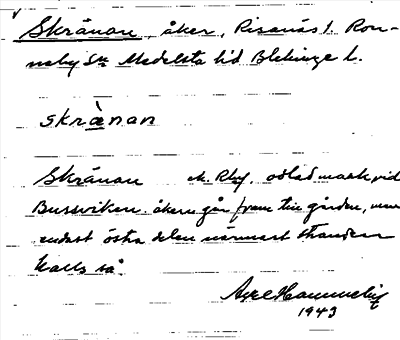 Skränan, åker, Risanäs 1. Ron-
neby Sn Medelsta hd Blekinge l.
skrànan
Skränan odlad mark vid
Bussviken. åkern går fram till gården, men
endast östra delen närmast stranden
kalls så.
1943